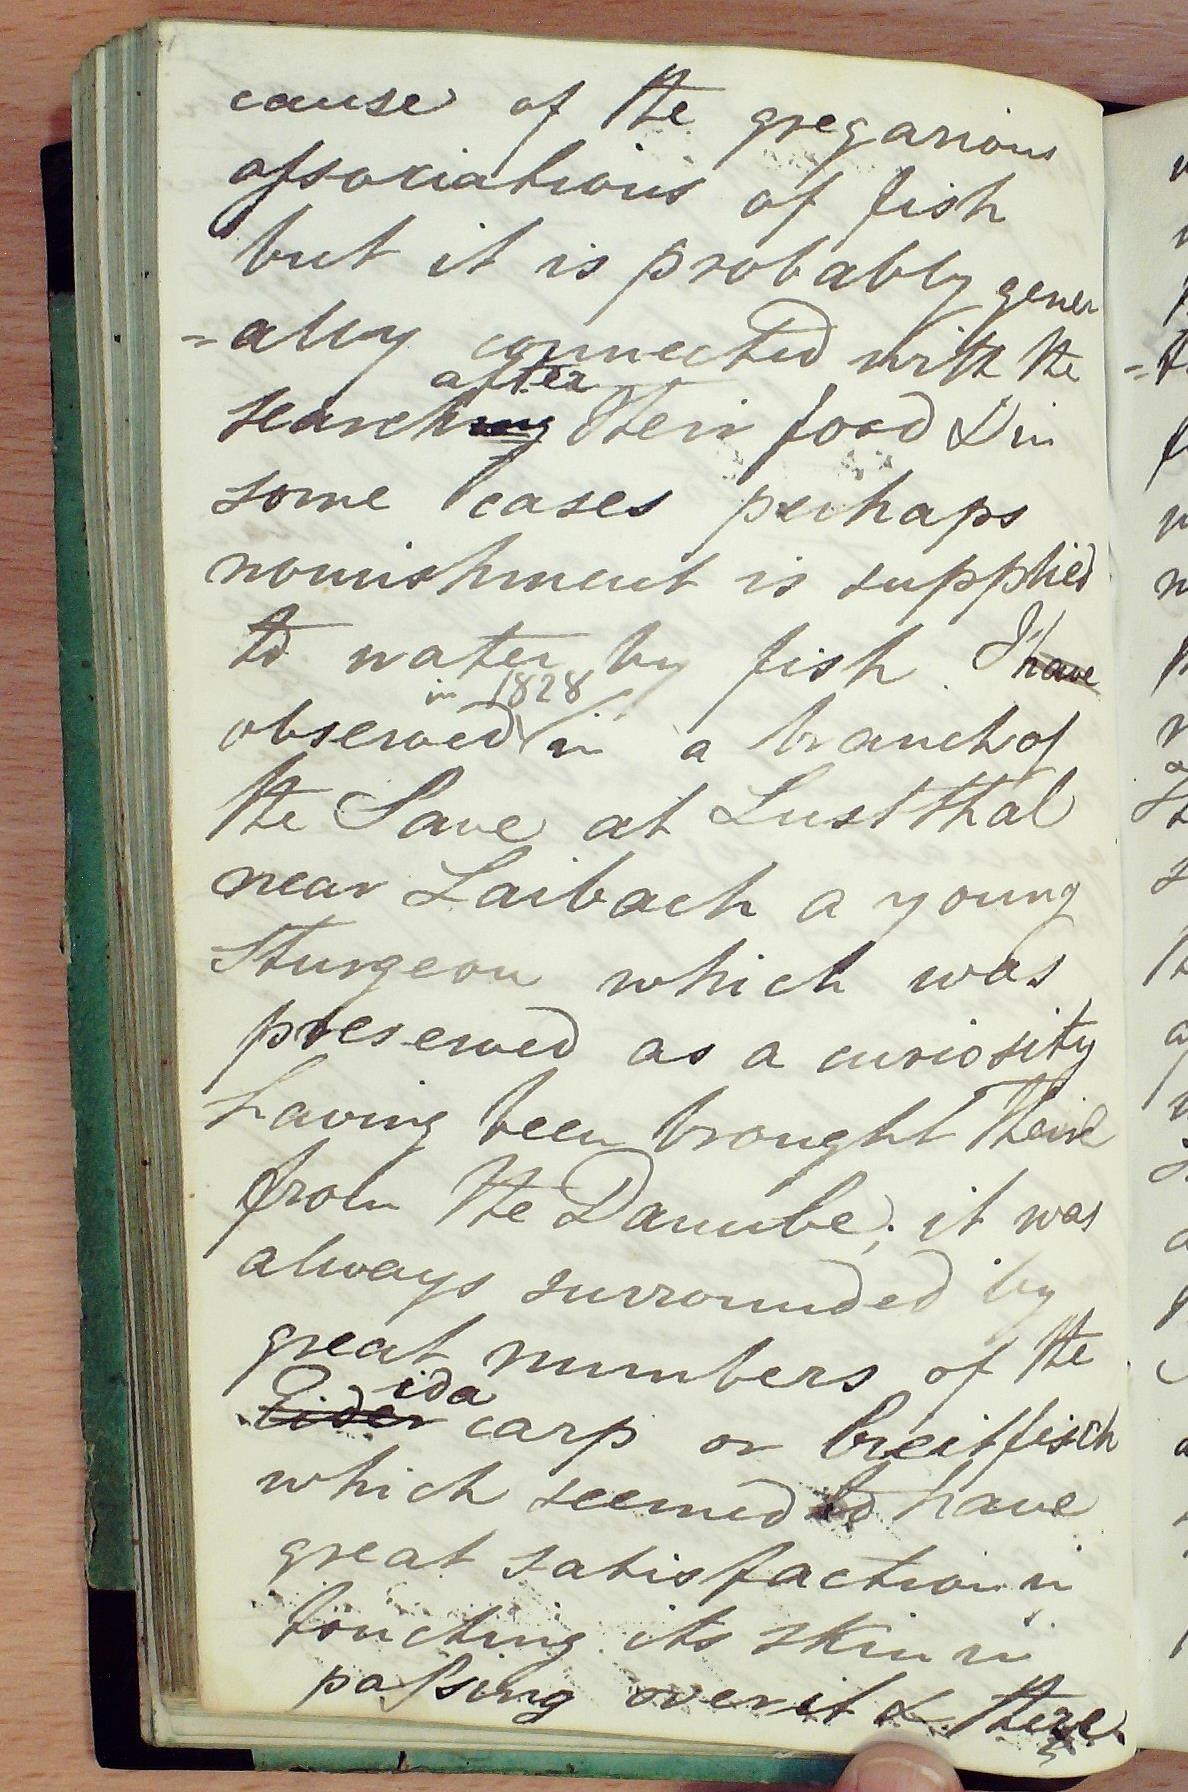 cause of the gregarious
associations of fish
but it is probably gener
=ally connected with the
after
searching their food & in
some cases perhaps
nourishment is supplied
to water by fish. I have
in 1828
observed in a branch of
the Save at Lustthal
near Laibach a young
Sturgeon which was
preserved as a curiosity
having been brought there
from the Danube; it was
always surrounded by
great numbers of the
ida
Eider carp or breitfisch
which seemed to have
great satisfaction in
touching its skin in
passing over it & there